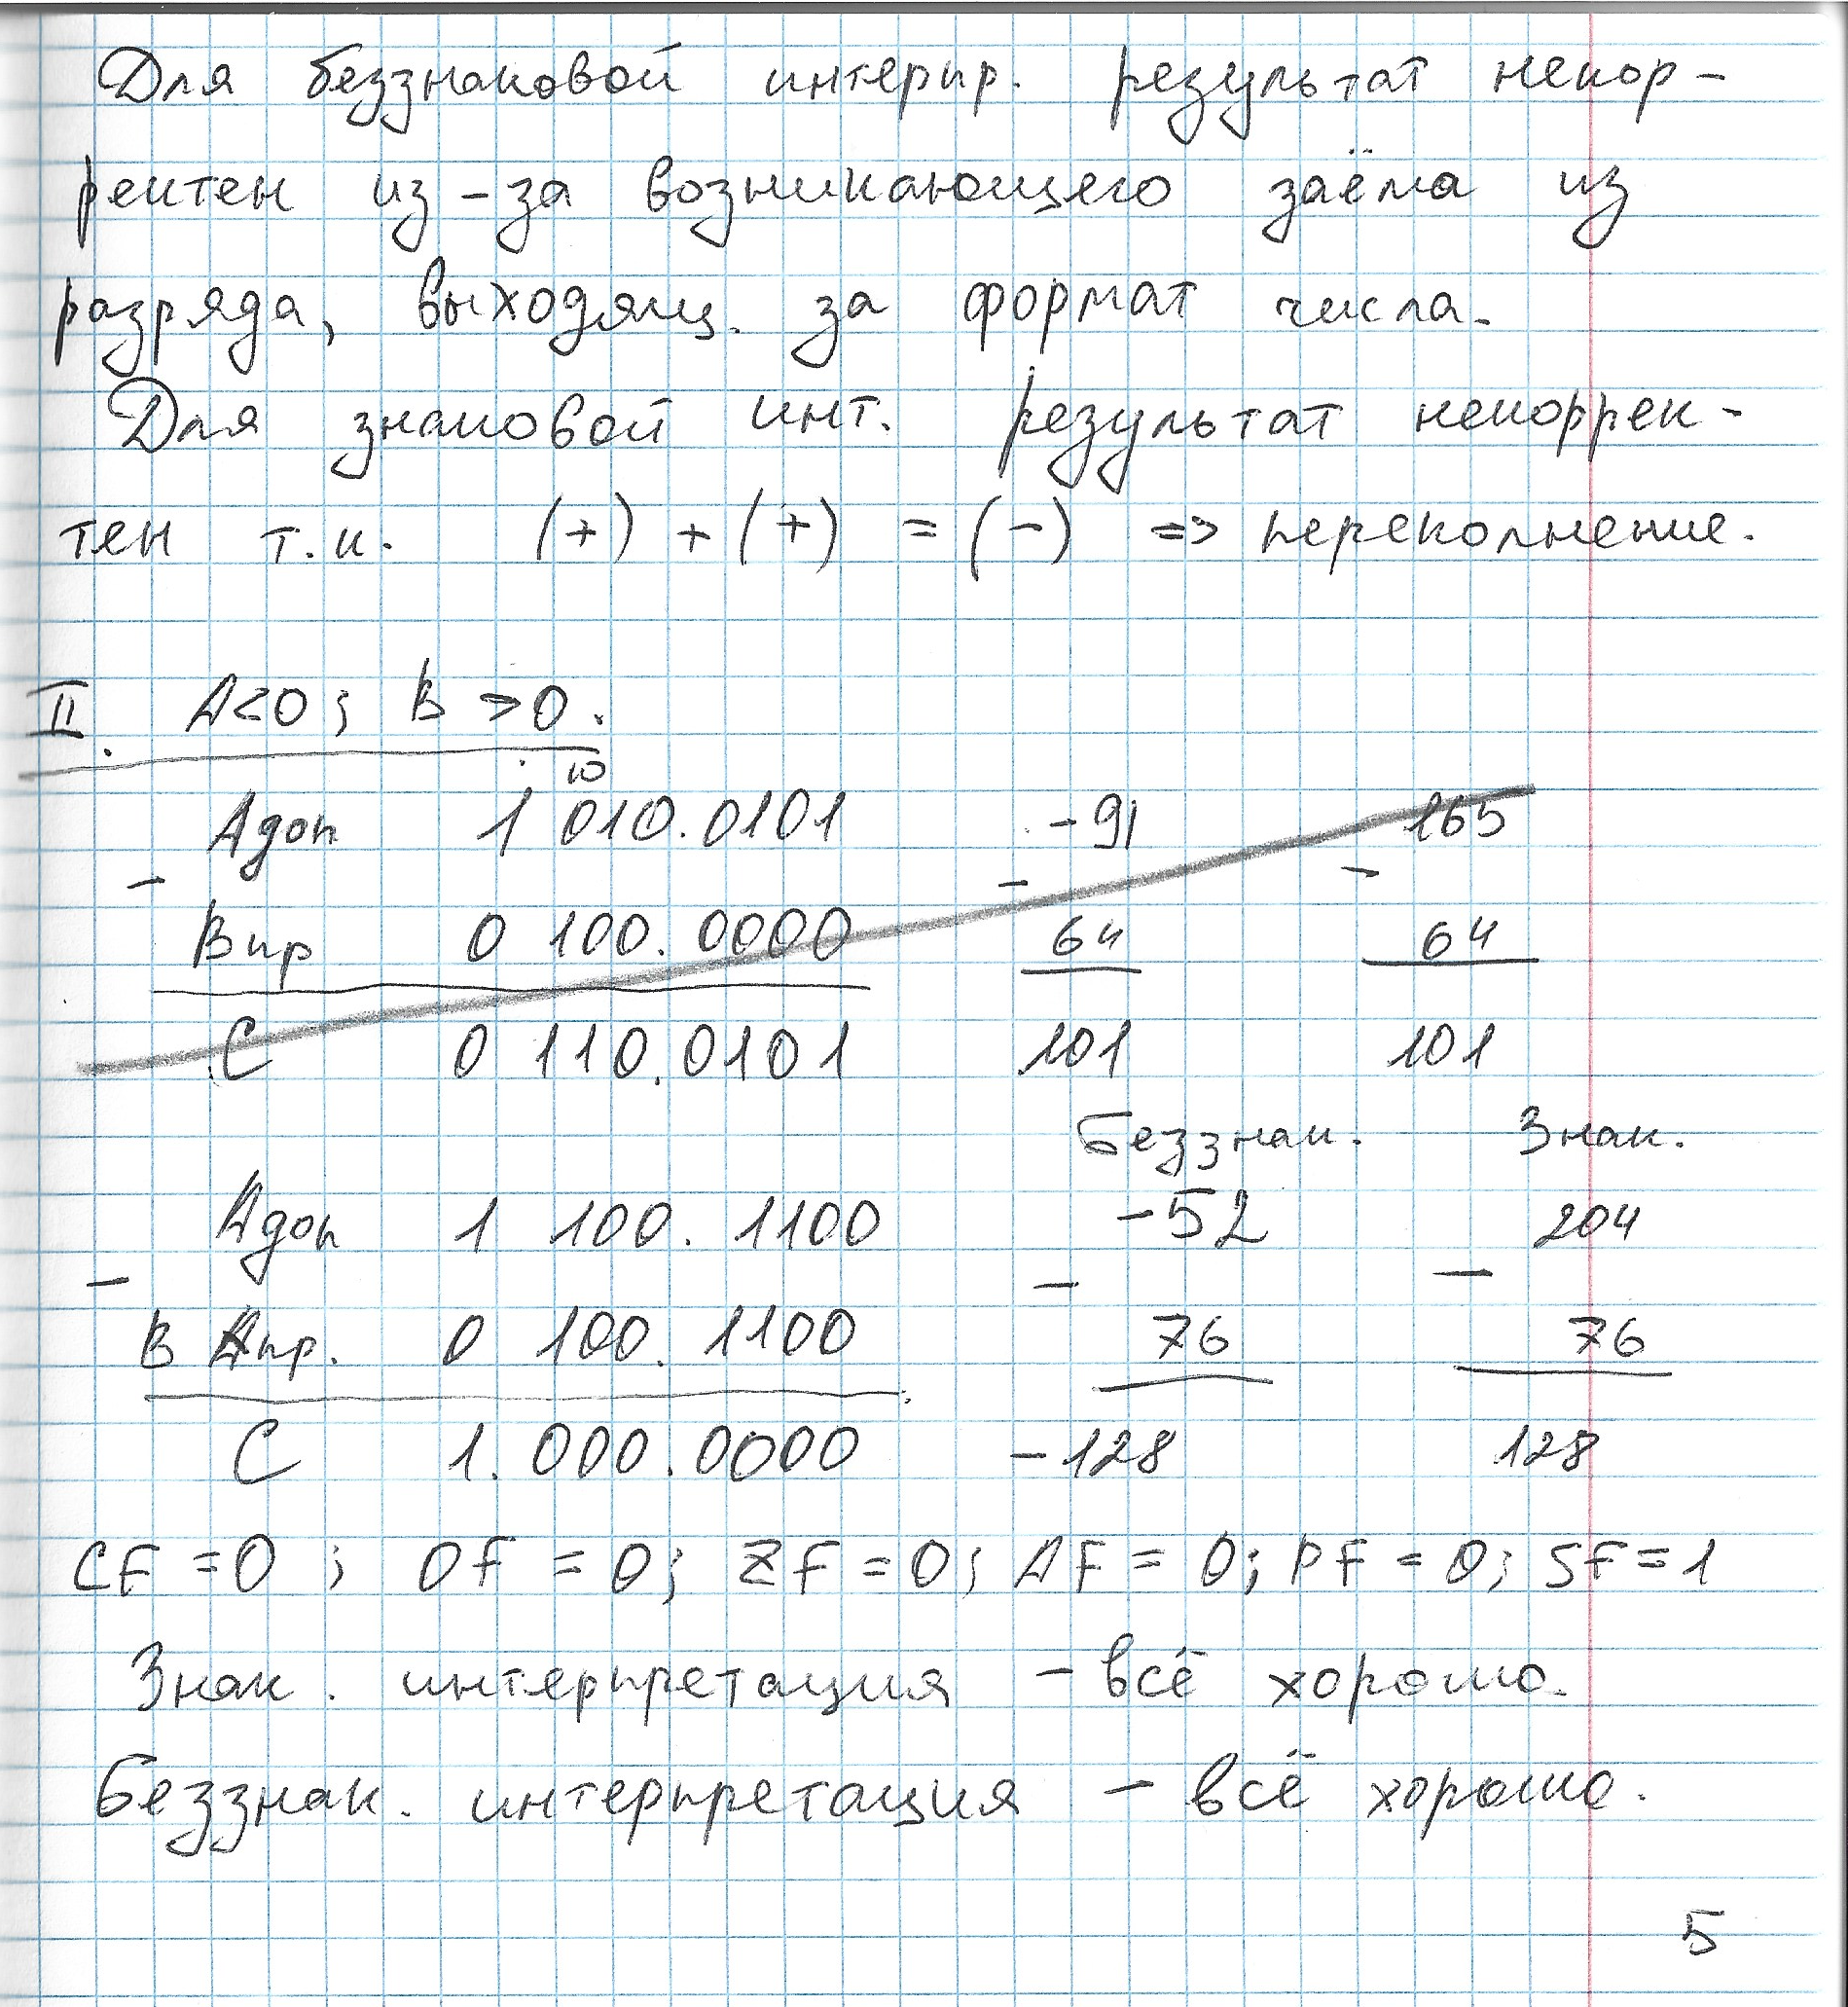 Для беззнаковой интерпр. результат некор-
ректен из-за возникающего заёма из
разряда, выходящ. за формат числа.
Для знаковой инт. результат некоррек-
тен т.к. (+) + (+) = (-) => переполнение.
II. A<0; B>0.
10
Aдоп 1 010.0101 -91 165
- - -
Bпр 0 100.0000 64 64
C 0 110.0101 101 101
Беззнак. Знак.
Aдоп 1 100.1100 -52 204
- - -
B пр. 0 100.1100 76 76
C 1.000.0000 -128 128
CF=0; OF=0; ZF=0; AF=0; PF=0; SF=1
Знак. интерпретация - всё хорошо.
Беззнак. интерпретация - всё хорошо.
5